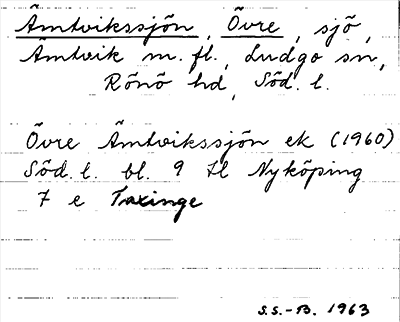 Åmtvikssjön, Övre, sjö,
Åmtvik m. fl., Ludgo sn,
Rönö hd, Söd. l.
Övre Åmtvikssjön ek (1960)
Söd. l. bl. 9 H Nyköping
7 e Taxinge
S.S.-B. 1963